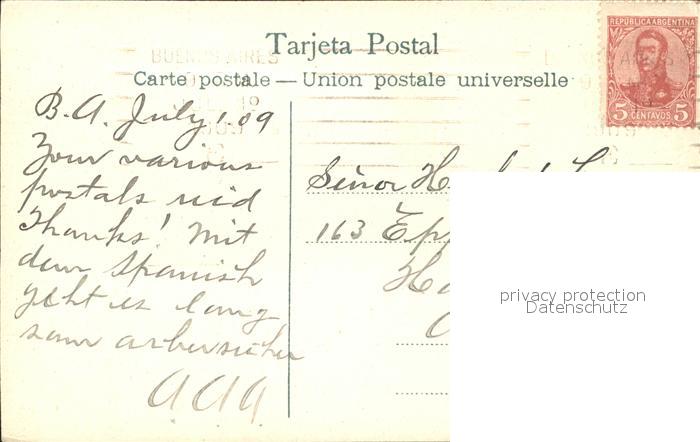 Tarjeta Postal
Carte postale — Union postale universelle
REPÚBLICA ARGENTINA
5 CENTAVOS 5
BUENOS AIRES
B. A. July 1. 09
Your various
postals recid
Thanks! Mit
dem Spanish
geht es lang
sam aber sicher
A A A.
Señor
163 Ep
Ha
privacy protection
Datenschutz